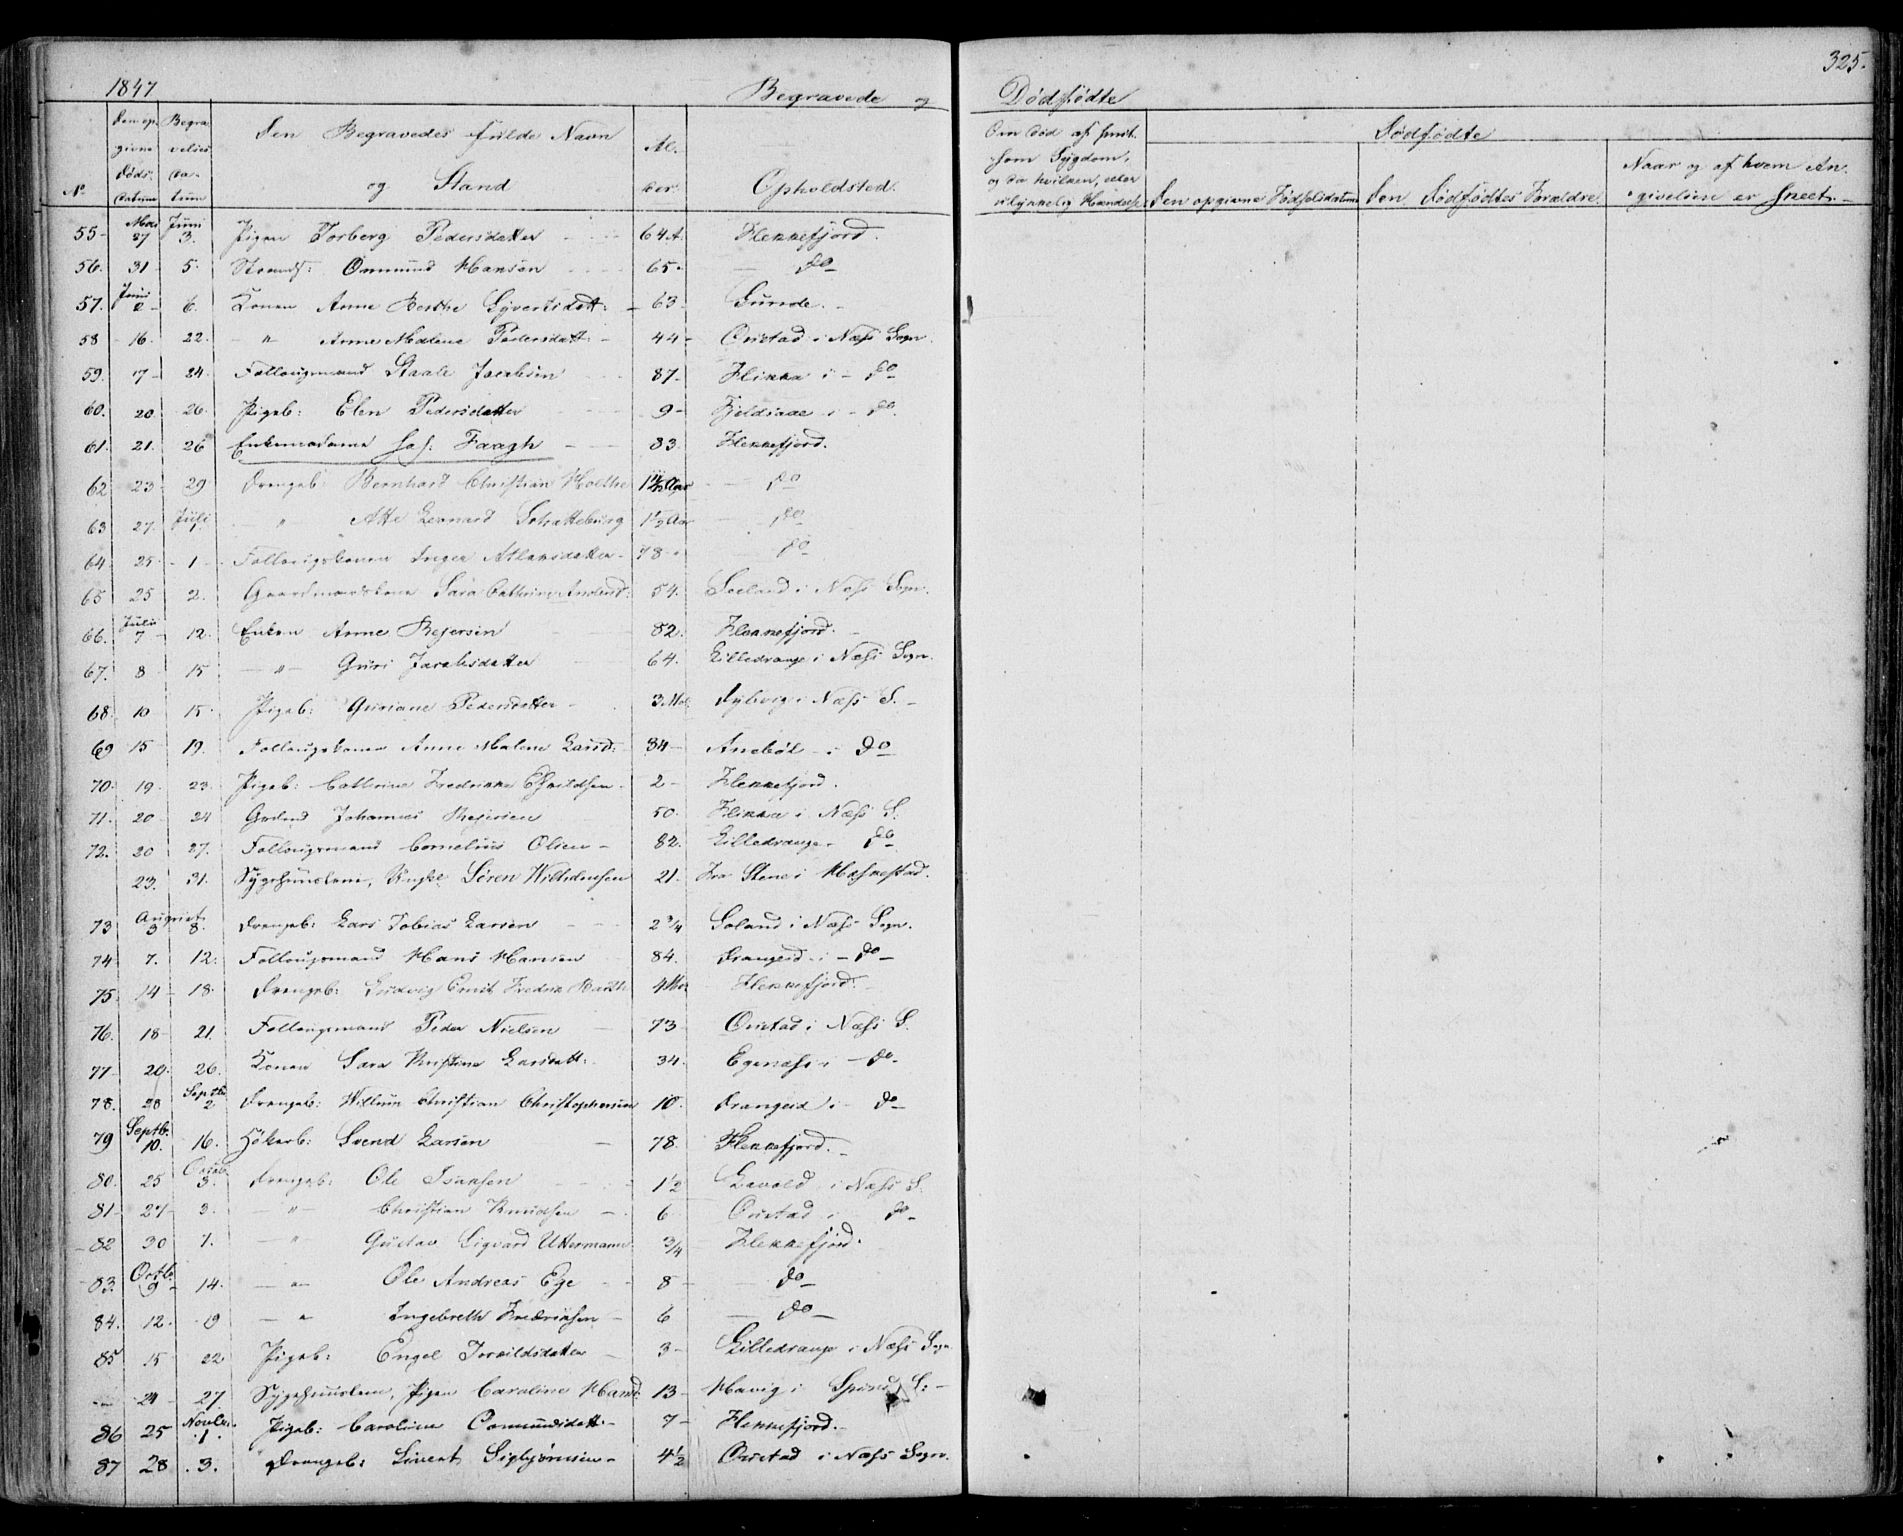 325.
1847 Begravede og Dødfødte
No Den opgivne Døds Datum Begravelses Datum Den Begravedes fulde Navn og Stand Alder Opholdsted. Om død af smitsom Sygdom, og da hvilken, eller ulykkelig Hændelse Dødfødte
Den opgivne Fødselsdatum Den Dødfødtes Forældre. Naar og af hvem Angivelsen er skeet.
55 Mai 27 Juni 3. Pigen Torberg Pedersdatter 64 A. Flekkefjord.
56. 31 5. Strands: Omund Hansen 65 do
57. Juni 2 6. Konen Anne Berthe Syvertsdatt: 63 Sunde.
58 16. 22. " Anne Malene Pedersdatt: 44 Oustad i Næss Sogn.
59. 17 24. Follougsmand Staale Jacobsen 87. Flikka i do
60. 20 26. Pigeb: Elen Pedersdatter 9 Fjeldsaae i do.
61. 21. 26 Enkemadame Faagh 83 Flekkefjord.
62 23 29 Drengeb: Bernhard Christian Aar do
63 27. Juli " Atte Leonard 1½ Aar do
64 25 1 Follougskonen Inger Atlaksdatter 78 do
65 25 2. Gaardmandskone Sara Cathrine Andersd: 54. Seeland i Næss Sogn.
66. Juli 7 12. Enken Anne Rejersen 82. Flekkefjord.
67. 8 15 " Guri Jacobsdatter 64. Lilledrange i Næss Sogn.
68 10 15 Pigeb: Guriane Pedersdatter 3 Md. Dybvig i Næss S.
69 15 19. Follougskonen Anne Malene Larsd: 84 Aneböl i do
70. 19 23. Pigeb: Cathrine Fredrikke Eskildsen 2 Flekkefjord.
71. 20 24 Grdmd Johannes Rejersen 50. Flikka i Næss S.
72. 20 27. Follougsmand Cornelius Olsen 82. Lilledrange do
23. 31. Sygehuuslem, Ungke Sören Wilhelmsen 21. Fra Stene i
73 August 3 8. Drengeb: Lars Tobias Larsen 2 ¾ Soland i Næss Sogn.
74 7. 12. Follougsmand Hans Hansen 84. Drangeid i do
75 14 18. Drengeb: Ludvig Ernst Fredrik 4 Md. Flekkefjord.
76. 18 21. Follougsmand Peder Nielsen 73 Oustad i Næss S.
77 20. 26. Konen Sara Kristine Larsdatt: 34. Egenæss i do.
78. 28 Septbr 2 Drengeb: Willum Christian Christophersen 10. Drangeid i do
79 Septb. 10. 16. Hökerb: Svend Larsen 78. Flekkefjord.
80. 25 3. Drengeb: Ole Isaksen 1½ Lavold i Næss S.
81 27 3. " Christian Knudsen 6 Oustad i do
82 30 7. " Gustav Sigvard Uttermann ¾ Flekkefjord.
83. Octb. 9 14. " Ole Andreas Ege 8 do
84. 12. 19 " Ingebreth Fredriksen 6 do
85 15 22 Pigeb: Engel Torkildsdatter 3 Lilledrange i Næss Sogn
24 27 Sygehuuslem, Pigen Caroline Hansd: 13 Havig i Spind S:
86 25 Novbr. 1. Pigeb: Caroline Omundsdatt: 7 Flekkefjord.
87 28 3. Drengeb: Sivert Sigbjörnsen 4½ Oustad i Næss Sogn.